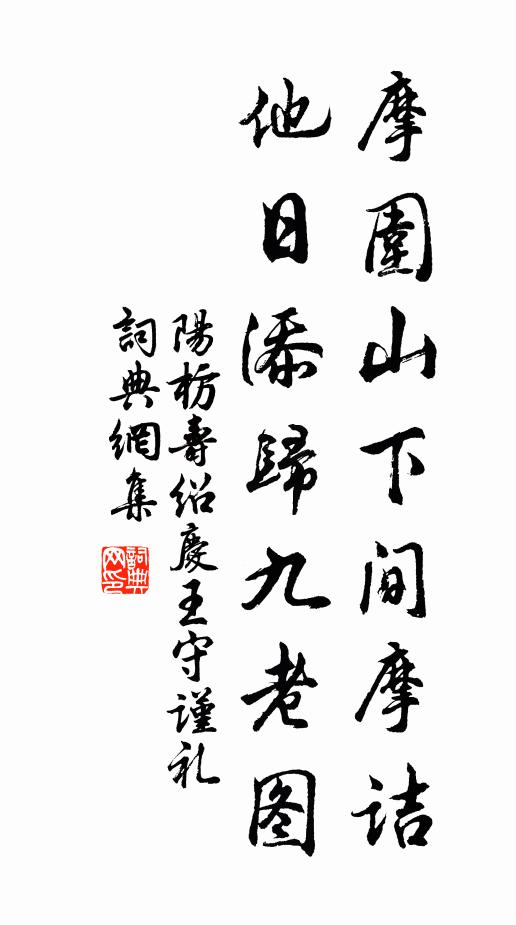 摩圍山下间摩诘
他日添歸九老图
陽枋壽紹慶王守謹礼
詞典網集
詞典网印